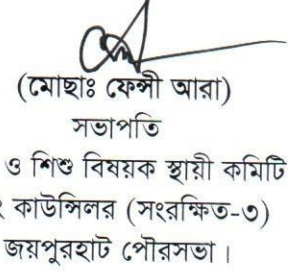 (মোছাঃ ফেন্সী আরা)
সভাপতি
ও শিশু বিষয়ক স্থায়ী কমিটি
কাউন্সিলর (সংরক্ষিত-৩)
জয়পুরহাট পৌরসভা।